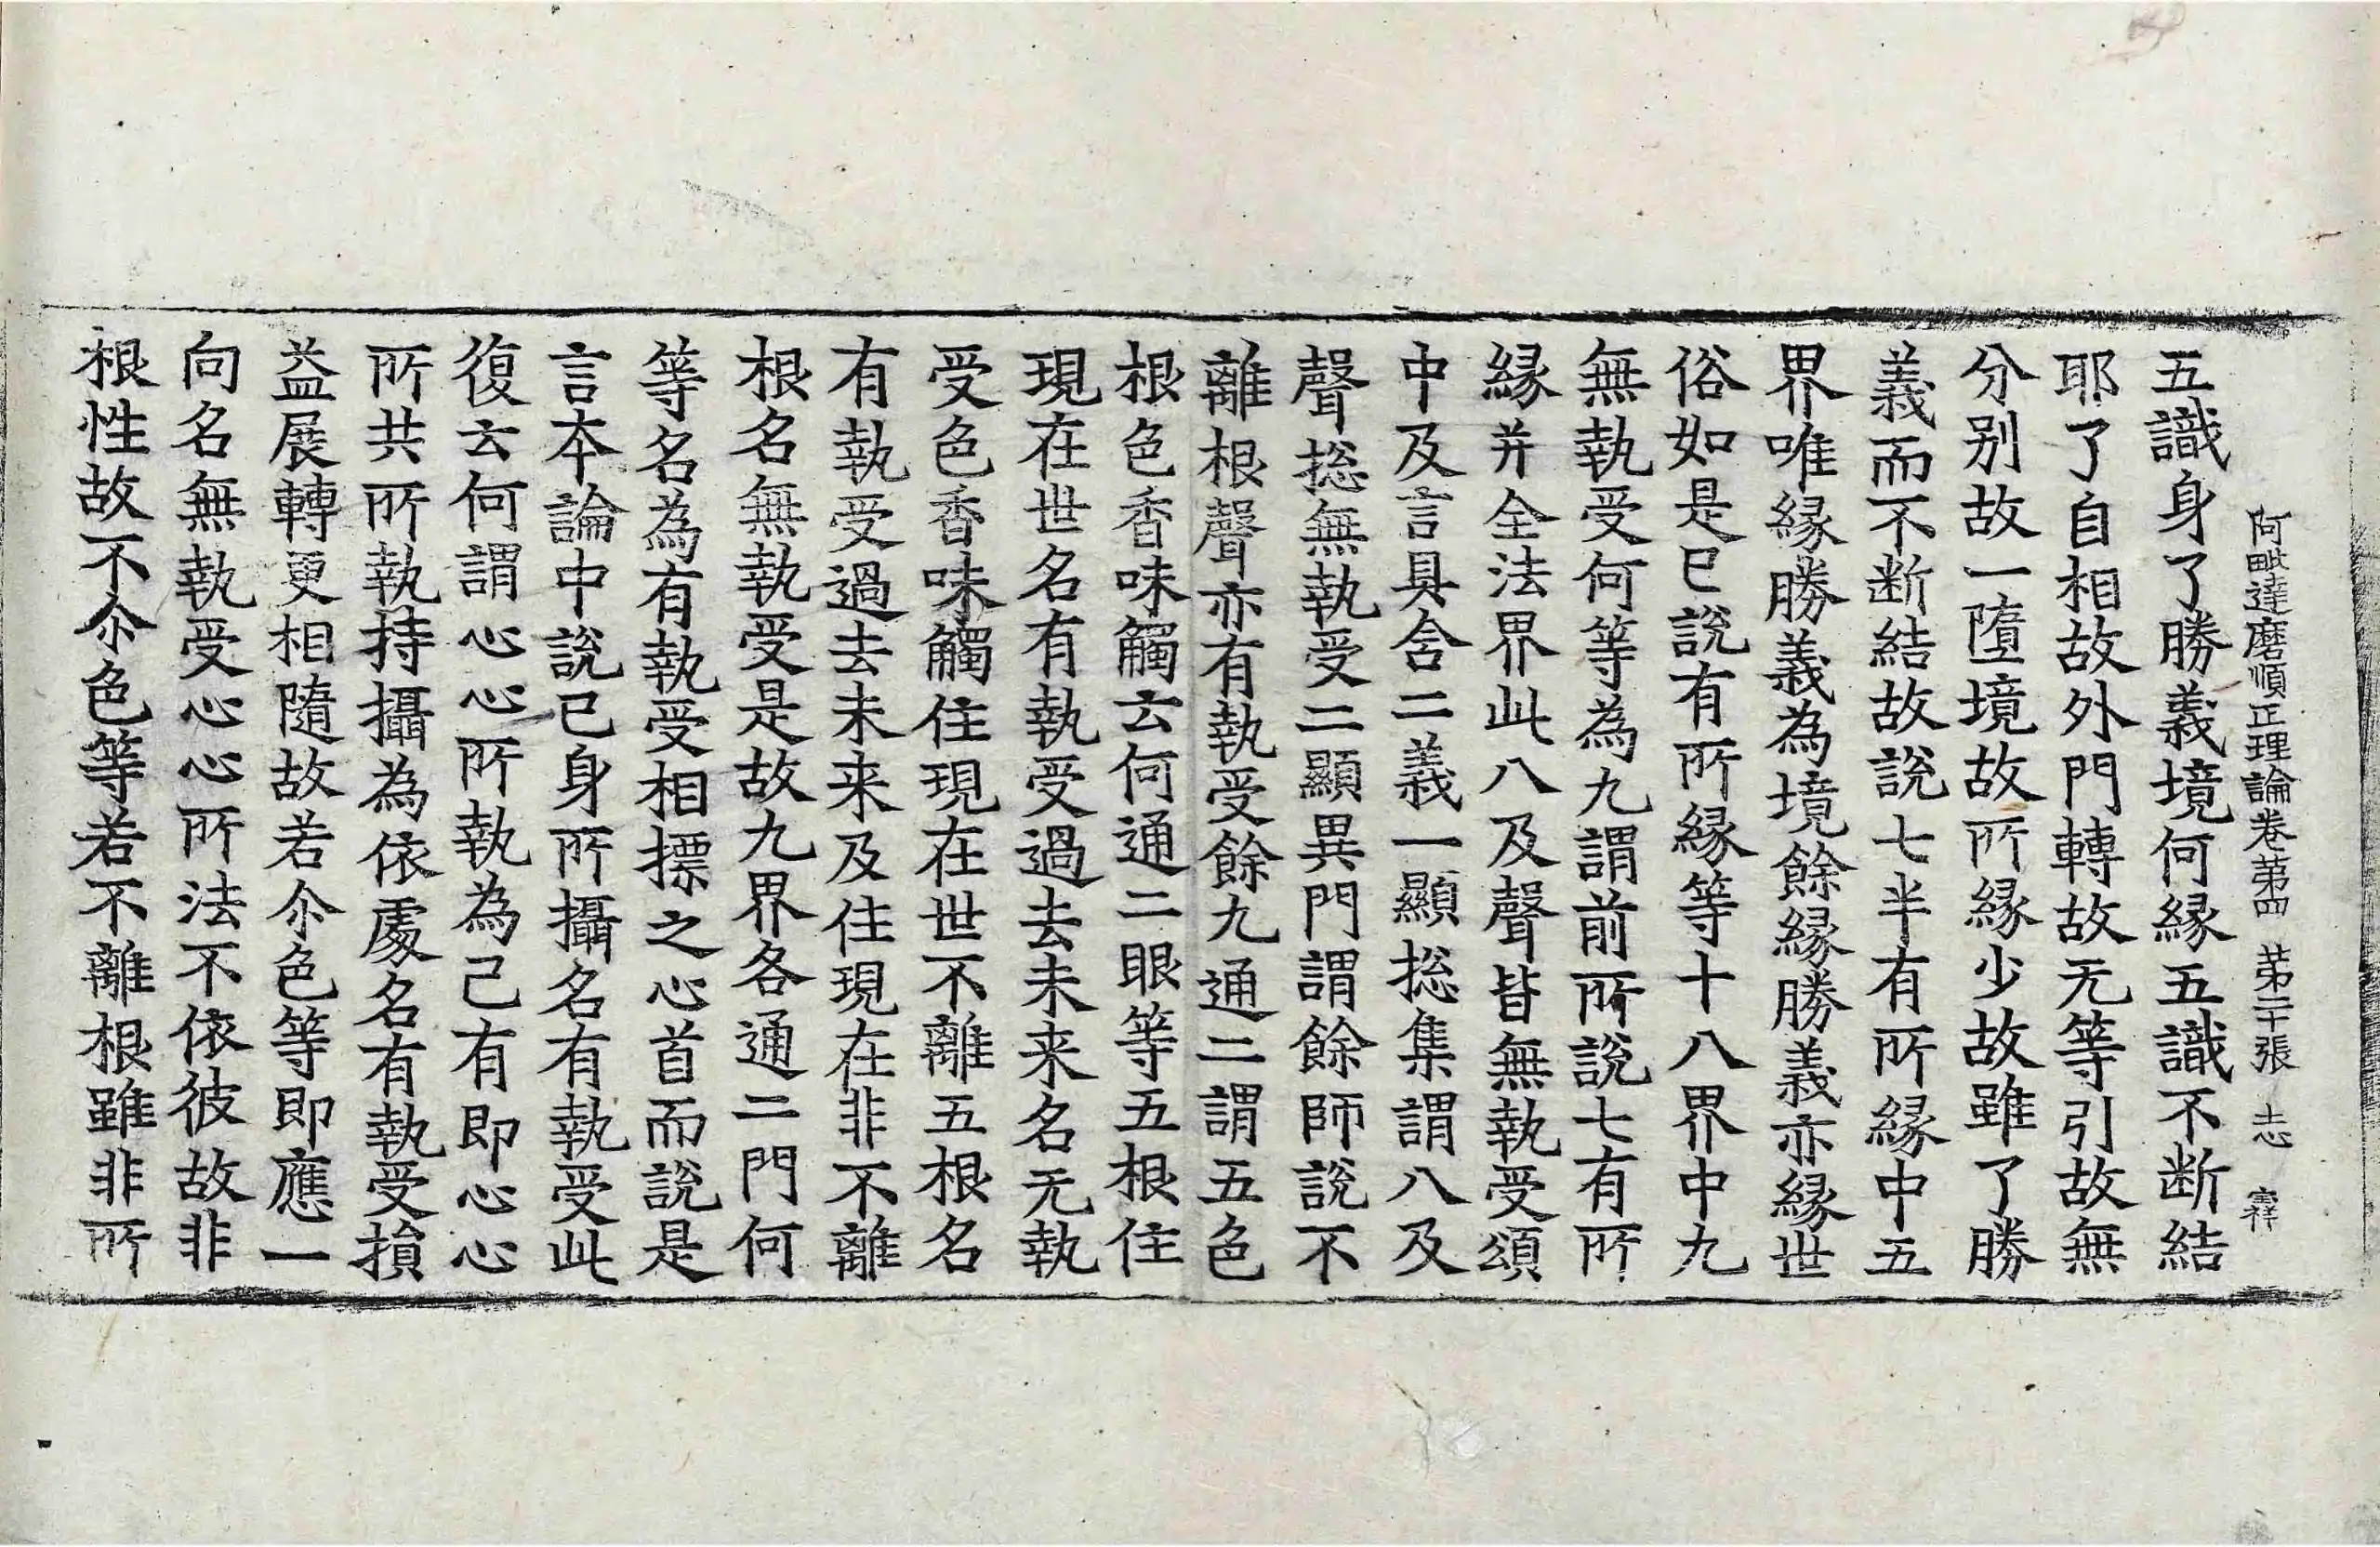 阿毗達磨順正理論卷第四 第二十張 志
五識身了勝義境何緣五識不断結
耶了自相故外門轉故无等引故無
分别故一墮境故所緣少故雖了勝
義而不断結故說七半有所緣中五
界唯緣勝義為境餘緣勝義亦緣世
俗如是已說有所緣等十八界中九
無執受何等為九謂前所說七有所
緣并全法界此八及聲皆無執受頌
中及言具含二義一顯揔集謂八及
聲揔無執受二顯異門謂餘師說不
離根聲亦有執受餘九通二謂五色
根色香味觸云何通二眼等五根住
現在世名有執受過去未来名无執
受色香味觸住現在世不離五根名
有執受過去未来及住現在非不離
根名無執受是故九界各通二門何
等名為有執受相摽之心首而說是
言本論中說已身所攝名有執受此
復云何謂心心所執為己有即心心
所共所執持攝為依處名有執受損
益展轉更相隨故若尒色等即應一
向名無執受心心所法不依彼故非
根性故不尒色等若不離根雖非所